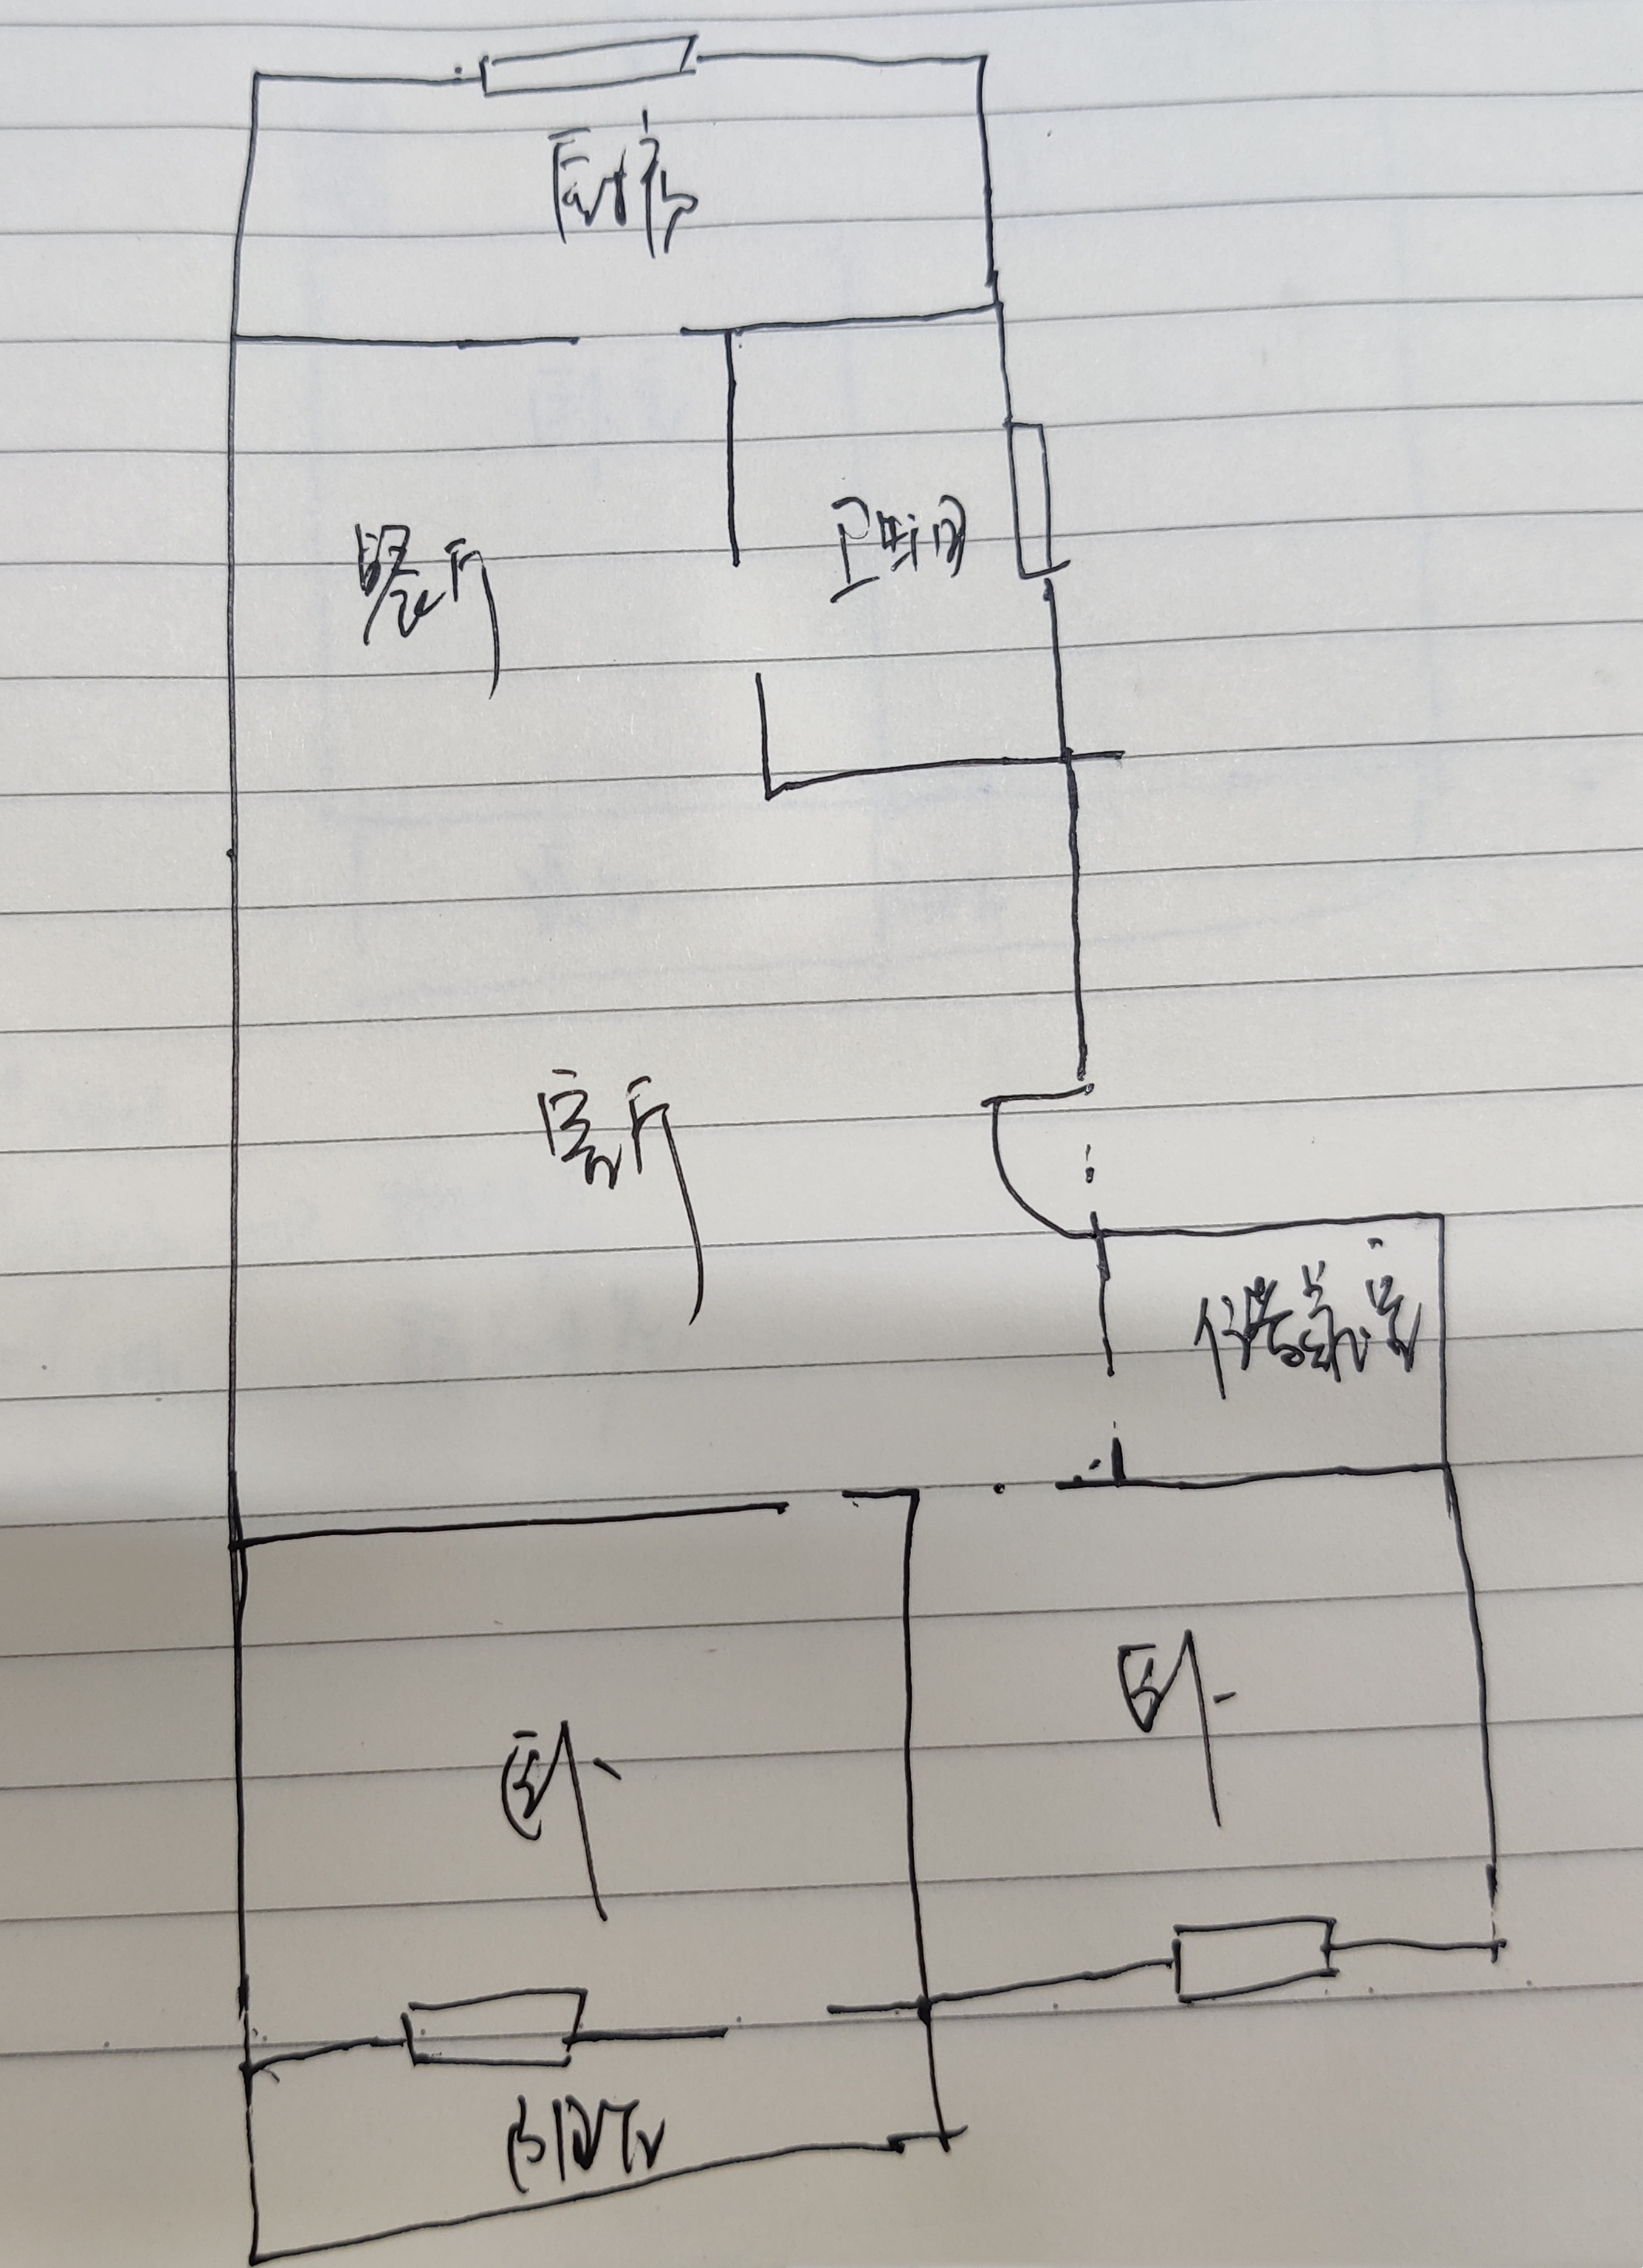 厨房
卫生间
餐厅
客厅
储藏室
卧
卧
阳台